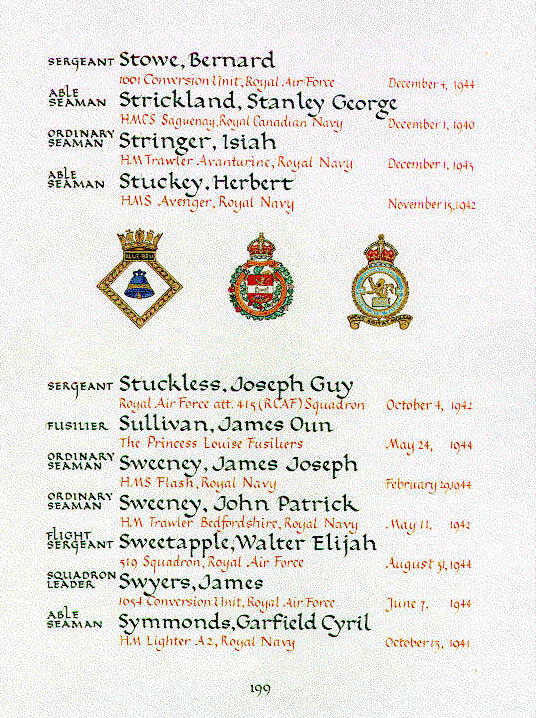 SERGEANT Stowe, Bernard
1001 Conversion Unit, Royal Air Force December 4, 1944
ABLE SEAMAN Strickland, Stanley George
HMCS Saguenay, Royal Canadian Navy December 1, 1940
ORDINARY SEAMAN Stringer, Isiah
HM Trawler Avanturine, Royal Navy December 1, 1943
ABLE SEAMAN Stuckey, Herbert
HMS Avenger, Royal Navy November 15, 1942
BLUE BELL
SERGEANT Stuckless, Joseph Guy
Royal Air Force att. 415 (RCAF) Squadron October 4, 1942
FUSILIER Sullivan, James Oun
The Princess Louise Fusiliers May 24, 1944
ORDINARY SEAMAN Sweeney, James Joseph
HMS Flash, Royal Navy February 29, 1944
ORDINARY SEAMAN Sweeney, John Patrick
HM Trawler Bedfordshire, Royal Navy May 11, 1942
FLIGHT SERGEANT Sweetapple, Walter Elijah
519 Squadron, Royal Air Force August 31, 1944
SQUADRON LEADER Swyers, James
1054 Conversion Unit, Royal Air Force June 7, 1944
ABLE SEAMAN Symmonds, Garfield Cyril
HM Lighter A2, Royal Navy October 13, 1941
199